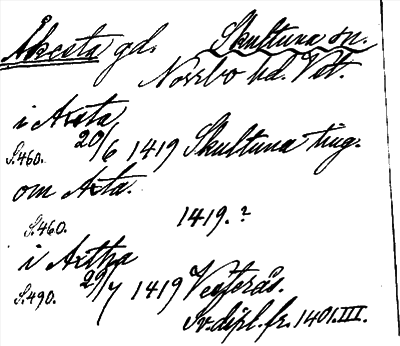 Åkesta gd. Skultuna sn.
Norrbo hd. Vst.
i Axsta
S.460. 20/6 1419 Skultuna ting.
om Axta.
S.460. 1419.?
i Axtha
S.490. 29/7 1419 Vesterås.
Sv. dipl. fr. 1401. III.